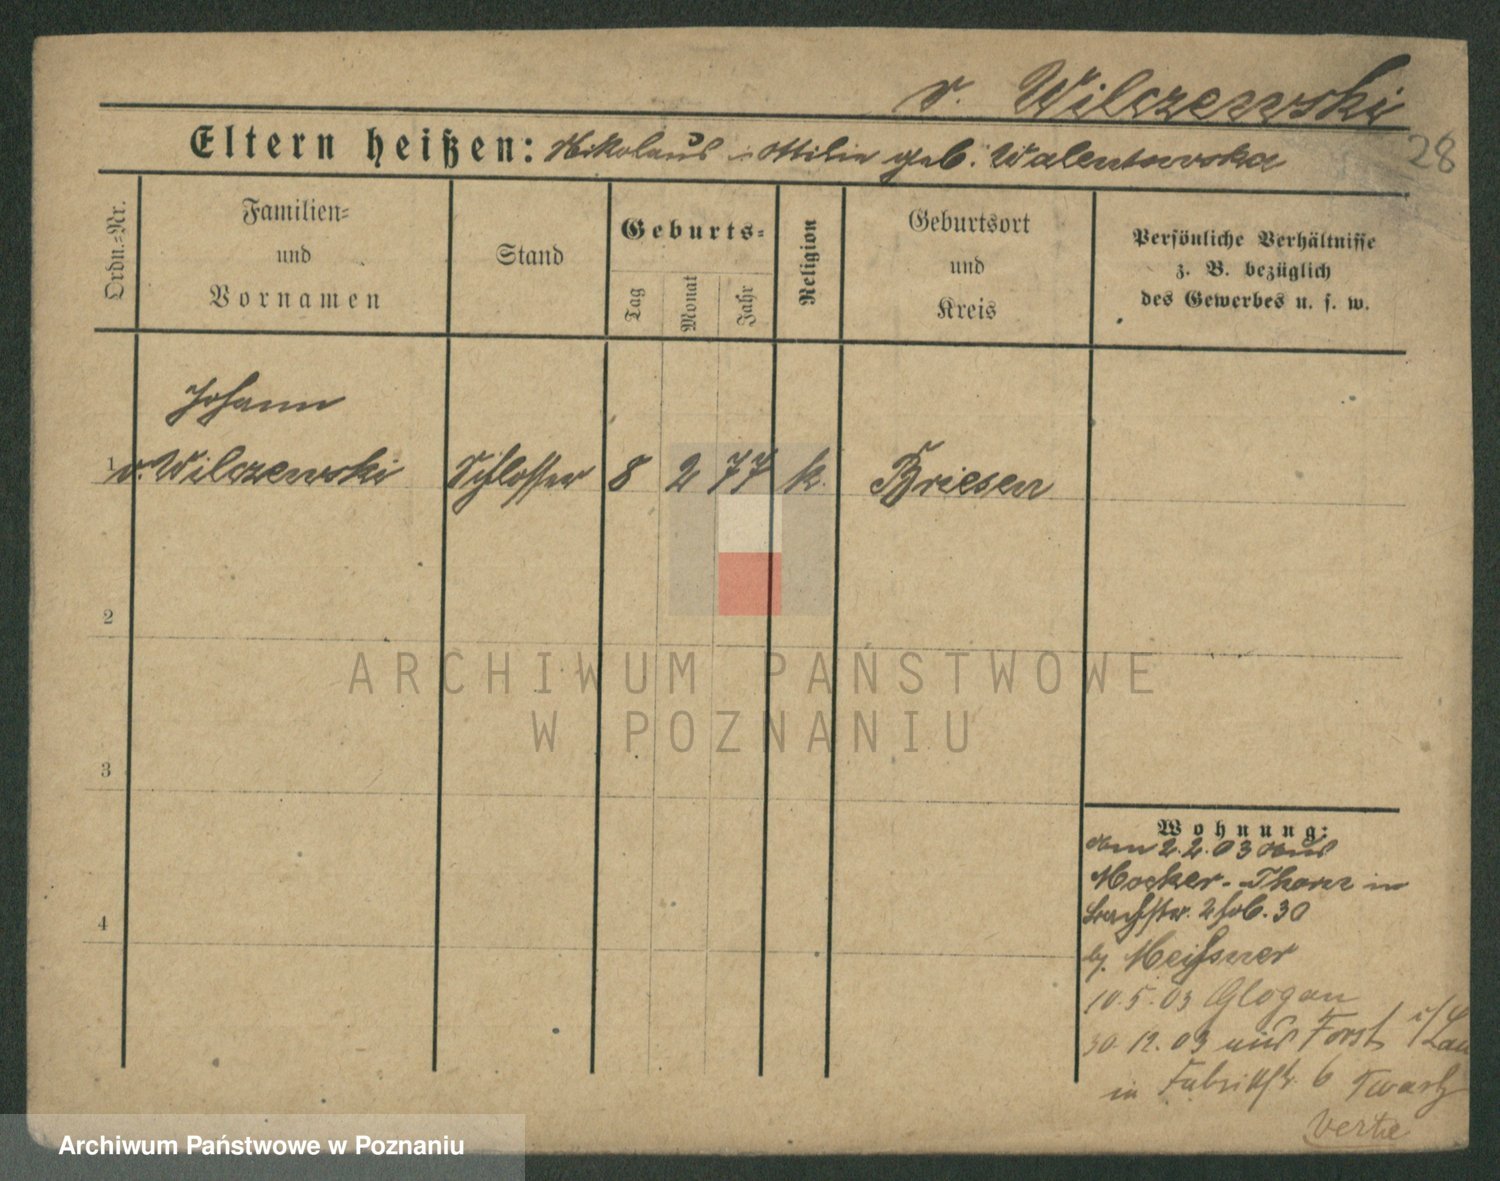 v. Wilczewski
28
Eltern heißen: Nikolaus u Ottilie geb. Walentowska
Ordn.=Nr.
Familien=
und
Vornamen
Stand
Geburts=
Tag
Monat
Jahr
Religion
Geburtsort
und
Kreis
Persönliche Verhältnisse
z. B. bezüglich
des Gewerbes u. s. w.
Johann
1 v. Wilczewski Schlosser 8 2 77 k. Briesen
2
3
4
ARCHIWUM PAŃSTWOWE
W POZNANIU
Wohnung:
am 2.2.03 aus
Mocker-Thorn in
2 30
b. Meißner
10.5.03 Glogau
30.12.03 aus Forst i/Lau
in Fabrikstr. 6
verte
Archiwum Państwowe w Poznaniu